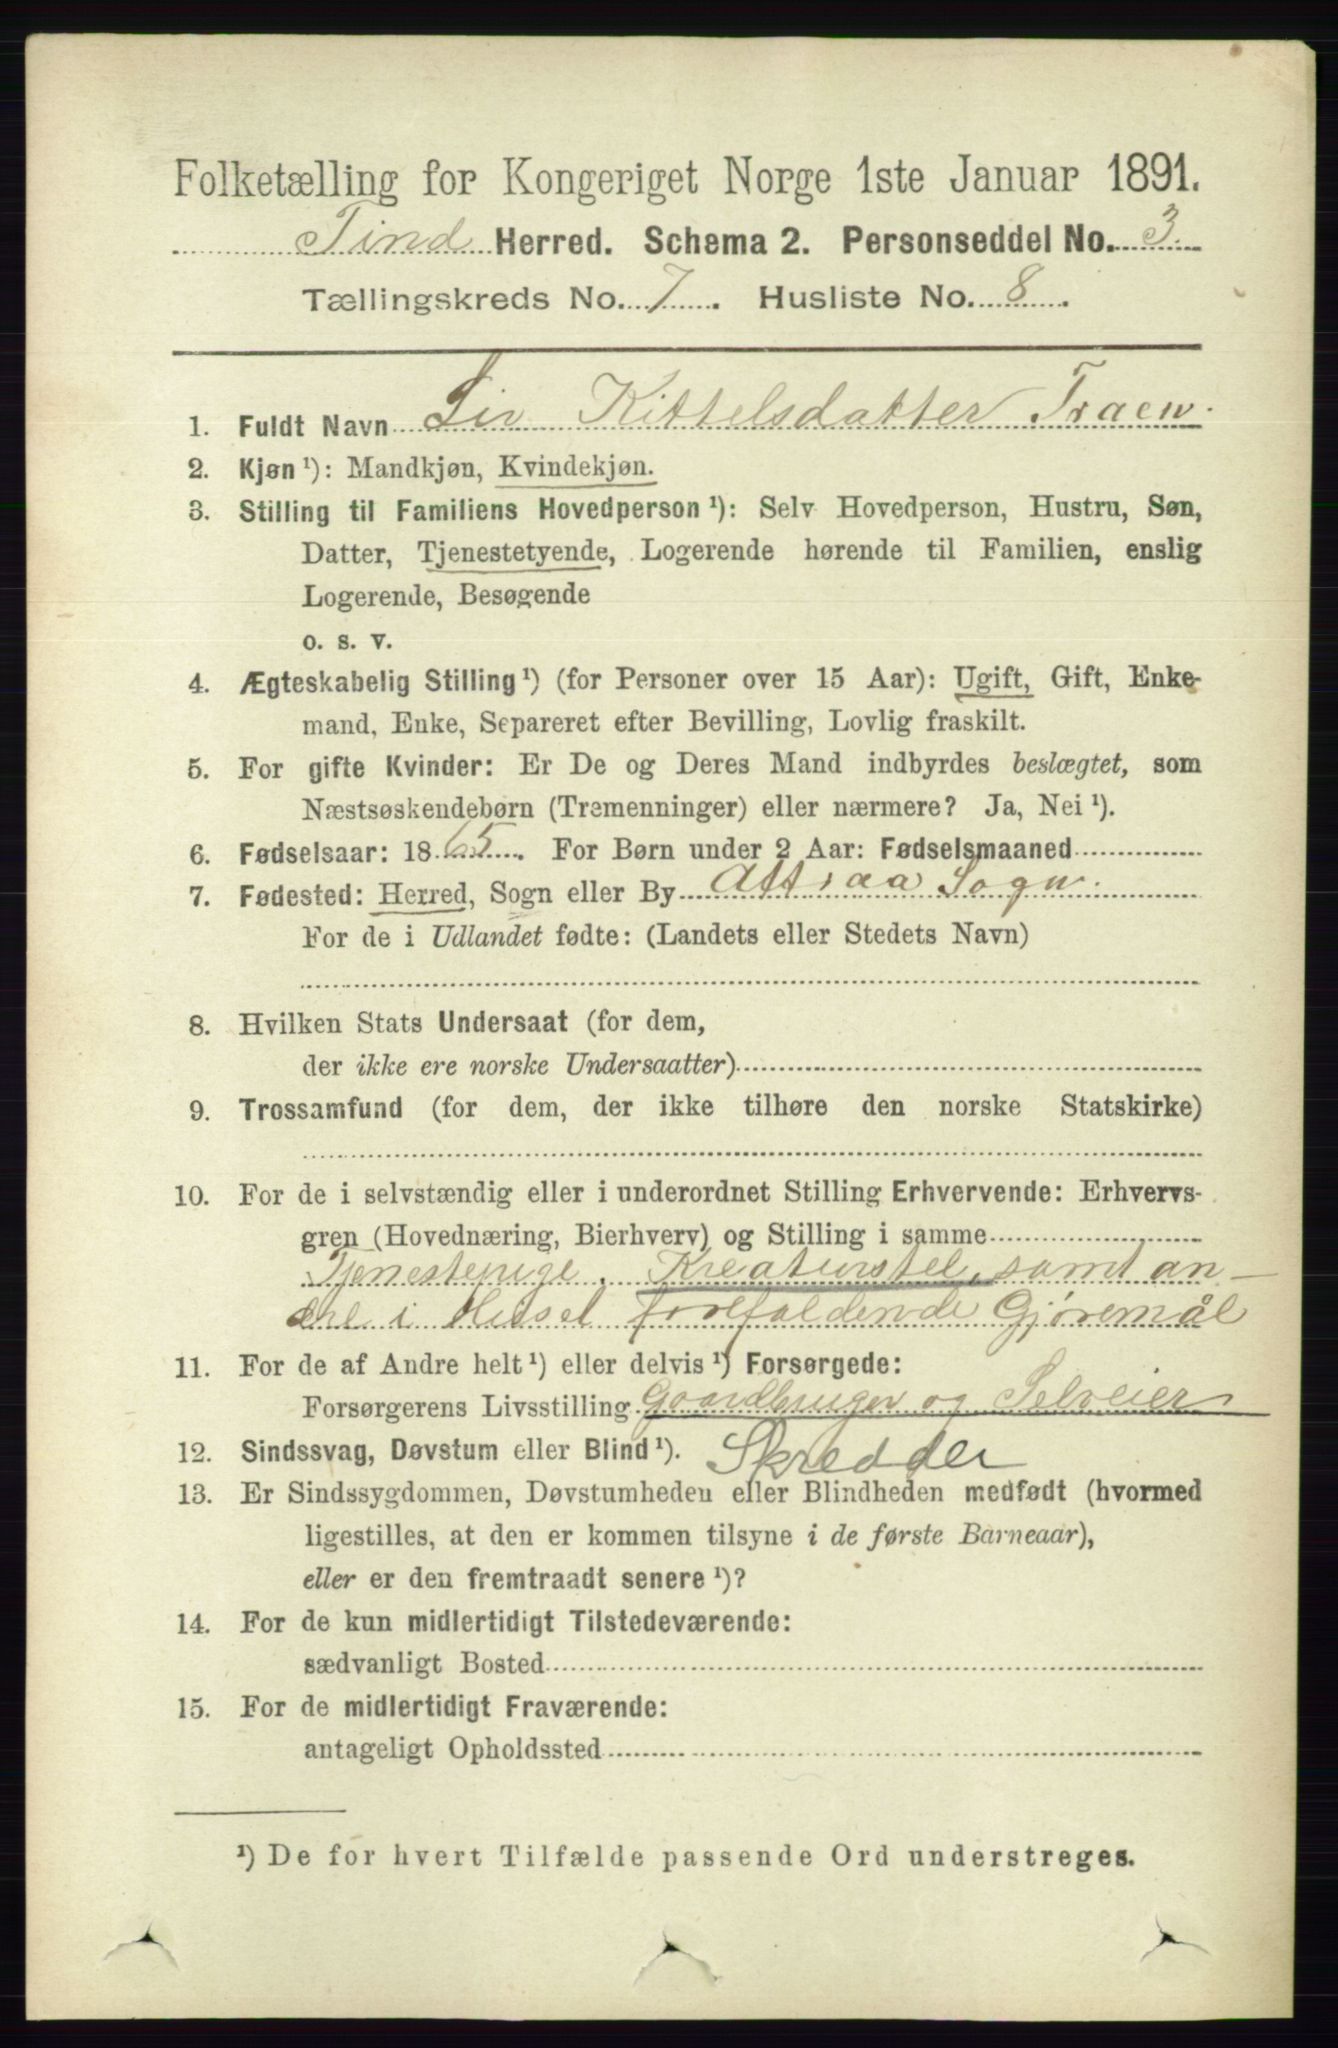 Folketælling for Kongeriget Norge 1ste Januar 1891.
Tind Herred. Schema 2. Personseddel No. 3.
Tællingskreds No. 7. Husliste No. 8.
1. Fuldt Navn Liv Kittelsdatter Traen.
2. Kjøn ¹): Mandkjøn, Kvindekjøn.
3. Stilling til Familiens Hovedperson ¹): Selv Hovedperson, Hustru, Søn,
Datter, Tjenestetyende, Logerende hørende til Familien, enslig
Logerende, Besøgende
o. s. v.
4. Ægteskabelig Stilling ¹) (for Personer over 15 Aar): Ugift, Gift, Enke-
mand, Enke, Separeret efter Bevilling, Lovlig fraskilt.
5. For gifte Kvinder: Er De og Deres Mand indbyrdes beslægtet, som
Næstsøskendebørn (Tremenninger) eller nærmere? Ja, Nei ¹).
6. Fødselsaar: 1865. For Børn under 2 Aar: Fødselsmaaned
7. Fødested: Herred, Sogn eller By Attraa Sogn.
For de i Udlandet fødte: (Landets eller Stedets Navn)
8. Hvilken Stats Undersaat (for dem,
der ikke ere norske Undersaatter)
9. Trossamfund (for dem, der ikke tilhøre den norske Statskirke)
10. For de i selvstændig eller i underordnet Stilling Erhvervende: Erhvervs-
gren (Hovednæring, Bierhverv) og Stilling i samme
Tjenestepige, Kreaturstel, samt an-
dre i Huset forefaldende Gjøremål
11. For de af Andre helt ¹) eller delvis ¹) Forsørgede:
Forsørgerens Livsstilling Gaardbruger og Selveier
12. Sindssvag, Døvstum eller Blind ¹). Skredder
13. Er Sindssygdommen, Døvstumheden eller Blindheden medfødt (hvormed
ligestilles, at den er kommen tilsyne i de første Barneaar),
eller er den fremtraadt senere ¹)?
14. For de kun midlertidigt Tilstedeværende:
sædvanligt Bosted
15. For de midlertidigt Fraværende:
antageligt Opholdssted
¹) De for hvert Tilfælde passende Ord understreges.